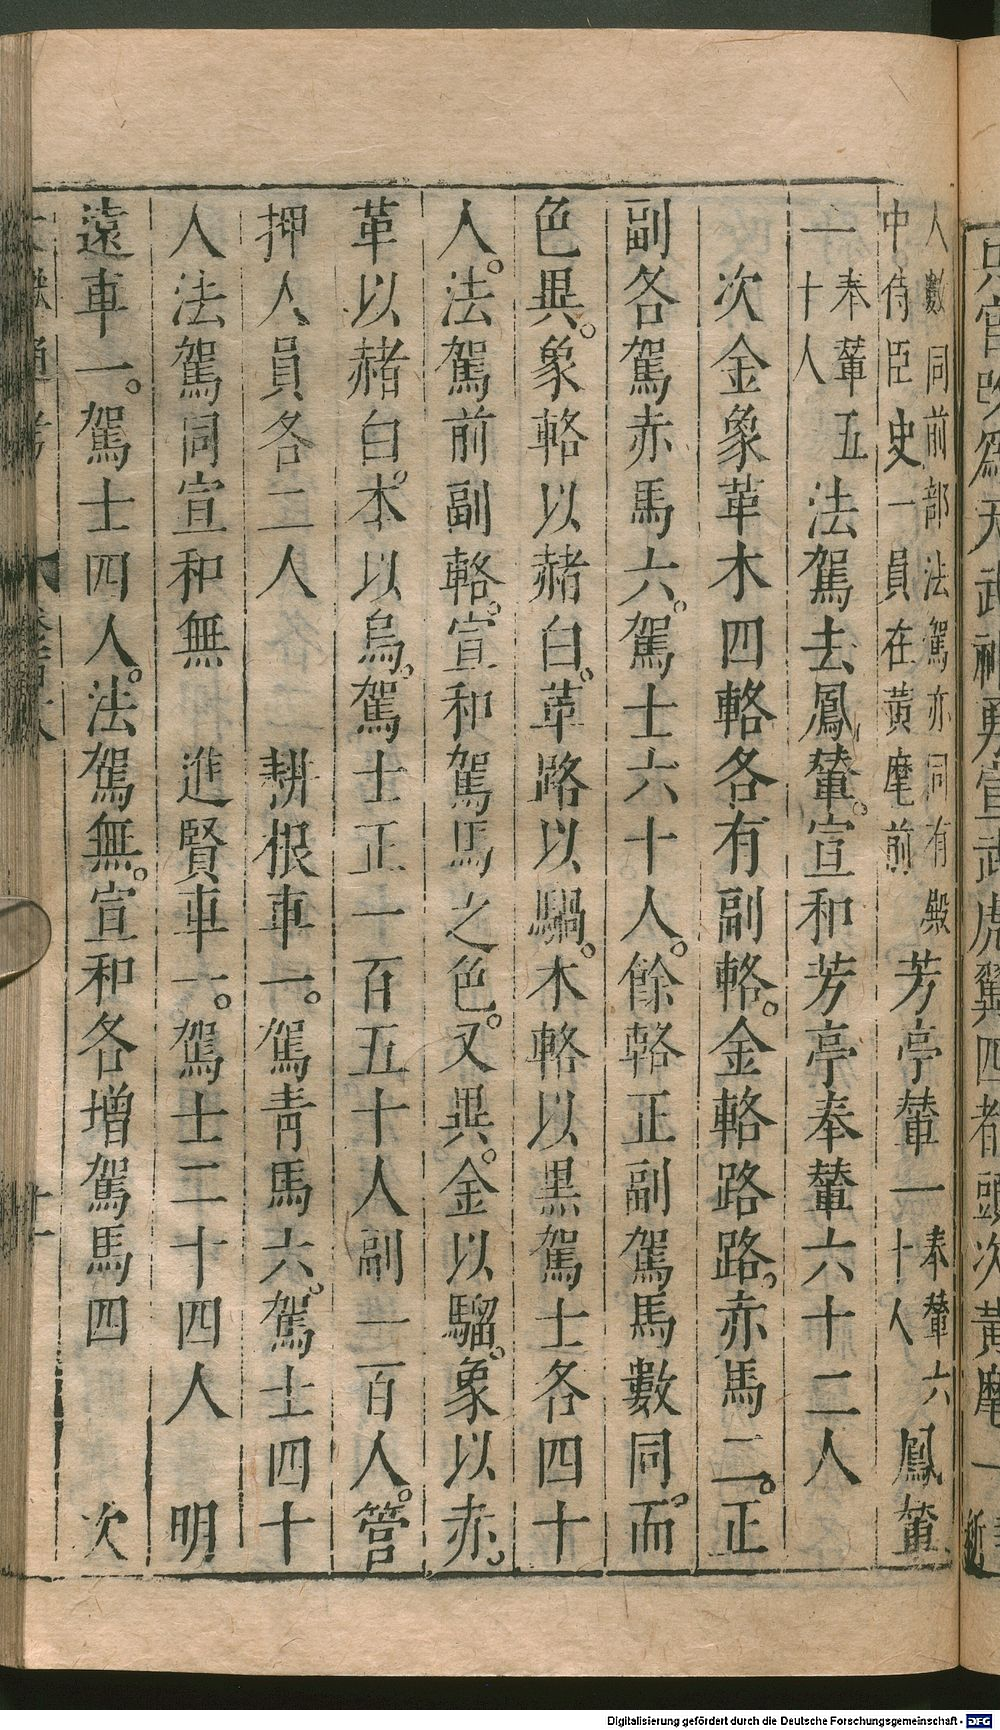 人數同前部法駕亦同有殿
中侍臣史一員在黃麾前
芳亭輦一
奉輦六
十人
鳳輦
一
奉輦五
十人
法駕去鳳輦。宣和芳亭奉輦六十二人
次金象革木四輅各有副輅。金輅路路。赤馬二。正
副各駕赤馬六。駕士六十人。餘輅正副駕馬數同。而
色異。象輅以赭白。革路以騧。木輅以黑駕士各四十
人。法駕前副輅。宣和駕馬之色。又異。金以騮。象以赤。
革以赭白。木以烏。駕士正一百五十人副一百人。管
押人員各二人 耕根車一。駕青馬六。駕士四十
人法駕同宣和無 進賢車一。駕士二十四人 明
遠車一。駕士四人。法駕無。宣和各增駕馬四 次
文獻通考
Digitalisierung gefördert durch die Deutsche Forschungsgemeinschaft - DFG